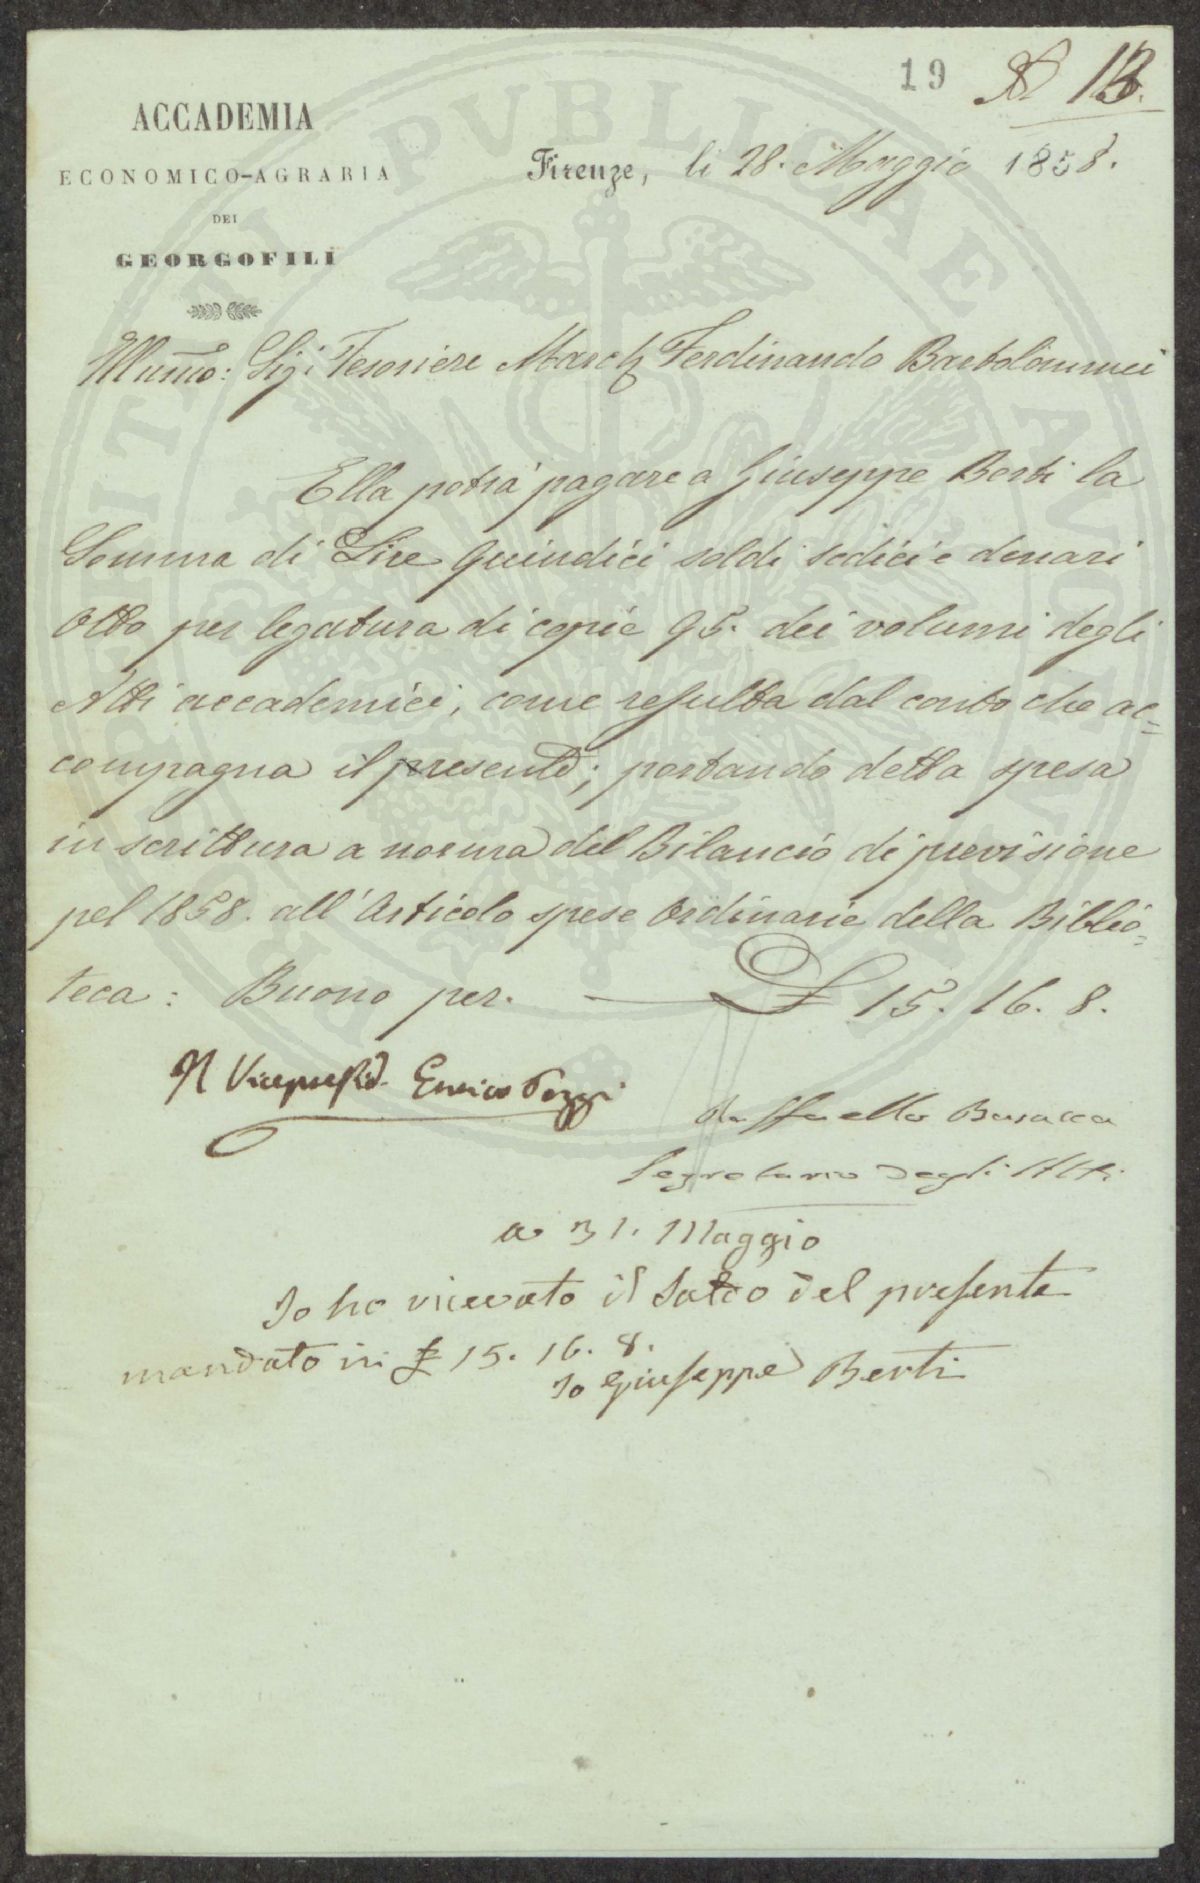 19 N. 13.
ACCADEMIA
ECONOMICO-AGRARIA
DEI
GEORGOFILI
Firenze, li 28. Maggio 1858.
Illumo: Sigr Tesoriere March Ferdinando Bartolommei
Ella potrà pagare a Giuseppe Berti la
Somma di Lire quindici soldi sedici e denari
Otto per legatura di copie 95. dei volumi degli
Atti accademici, come resulta dal conto che ac=
compagna il presente; portando detta spesa
in scrittura a norma del Bilancio di previsione
pel 1858. all'Articolo spese Ordinarie della Biblio=
teca: Buono per. £ 15. 16. 8.
Il Vicepresid. Enrico Poggi
Raffaello Busacca
Segretario degli Atti
a 31. Maggio
Io ho ricevuto il Saldo del presente
mandato in £ 15. 16. 8.
Io Giuseppe Berti